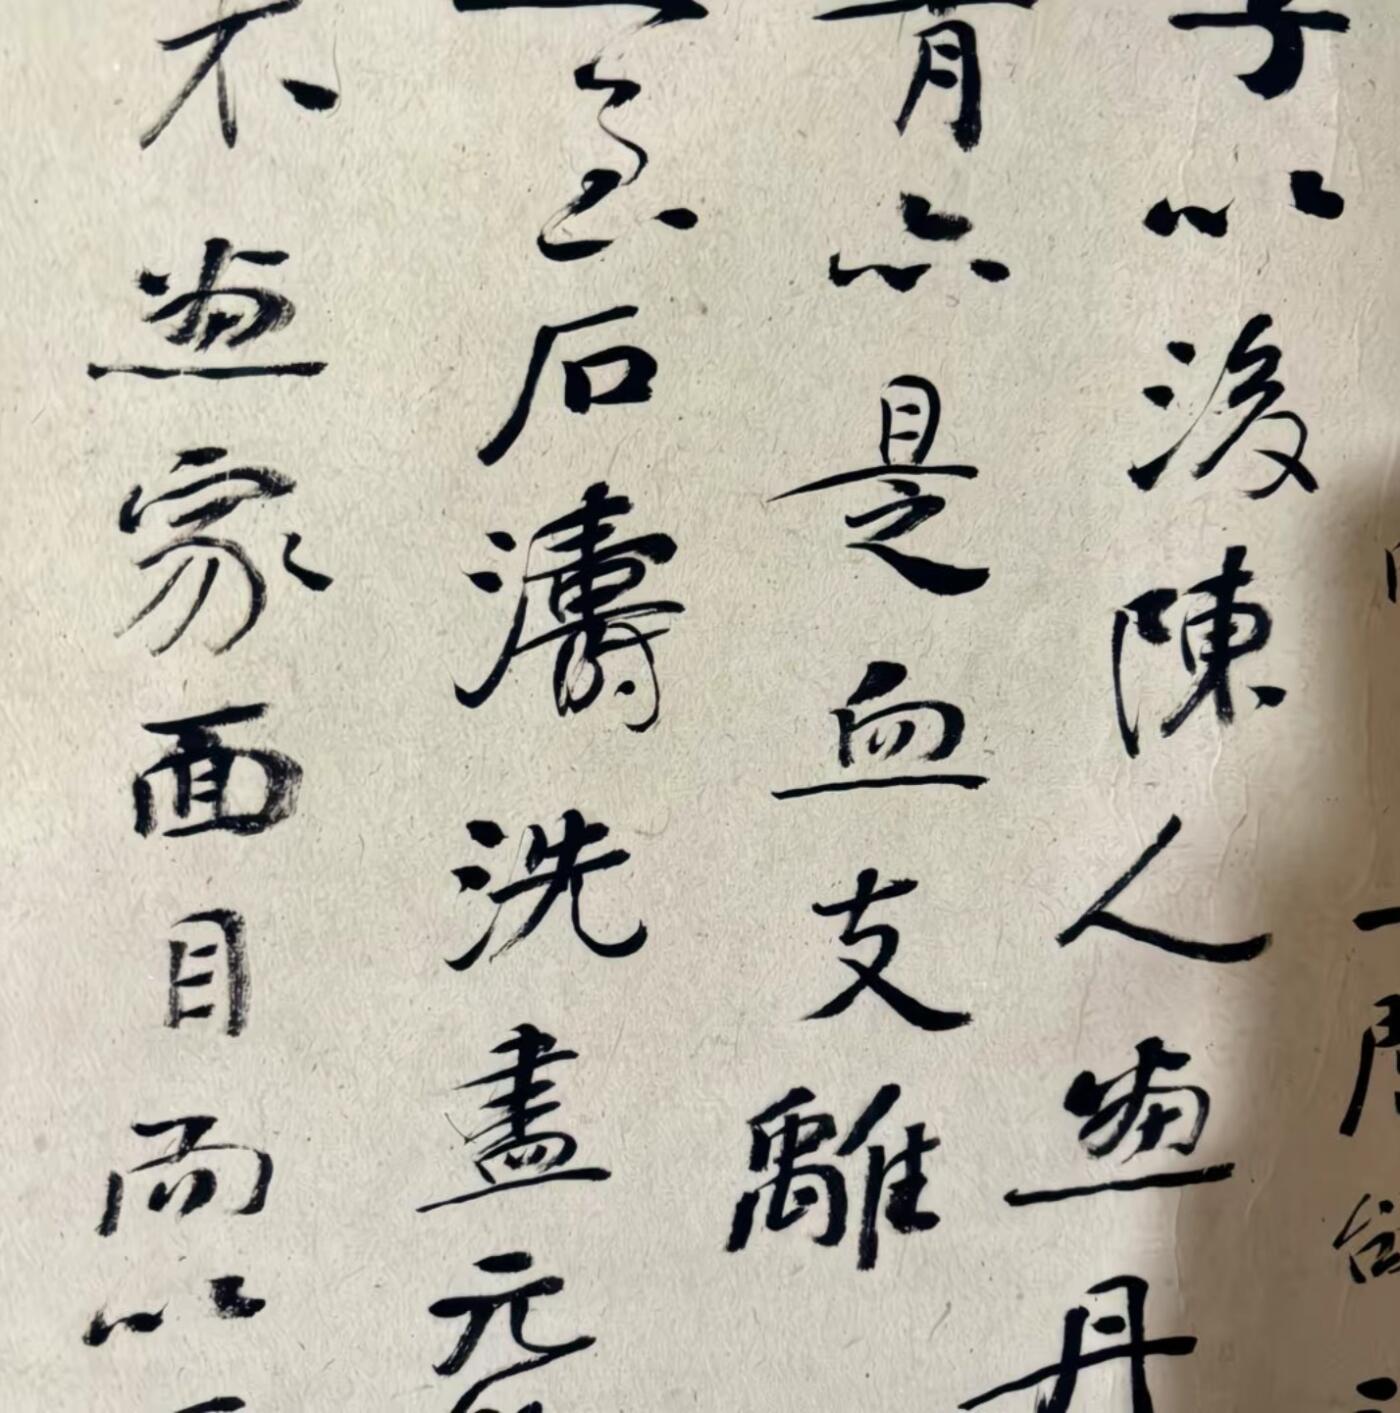 字以後陳人畫丹
青亦是血支離
至石濤洗盡元
不畫家面目而以